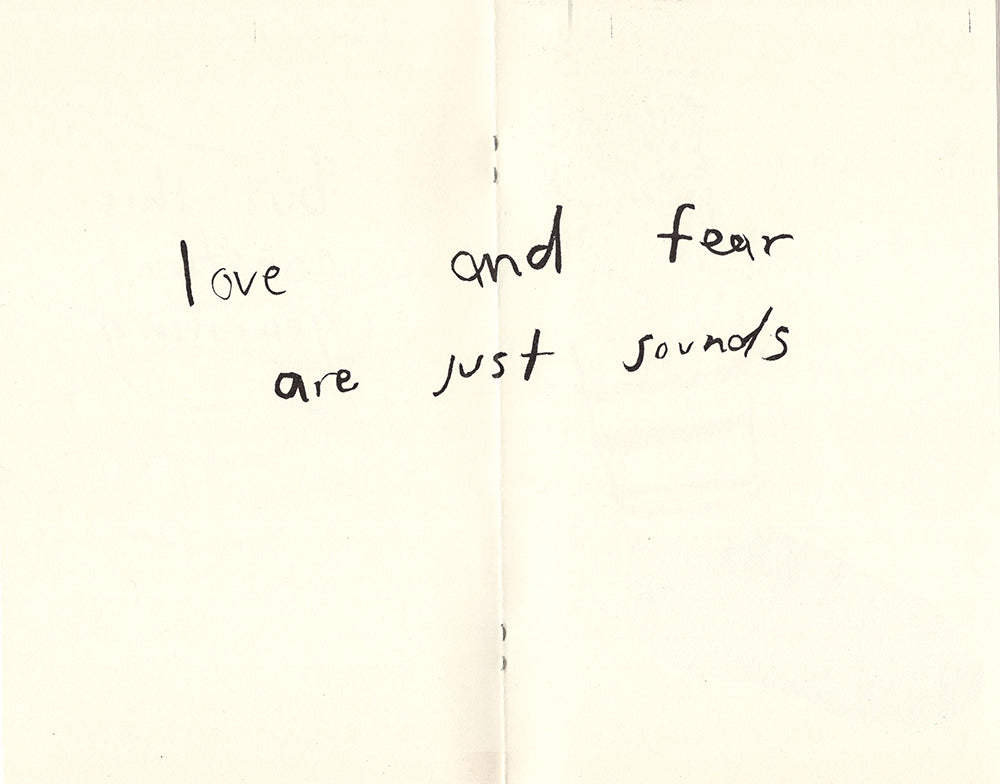 love and fear
are just sounds